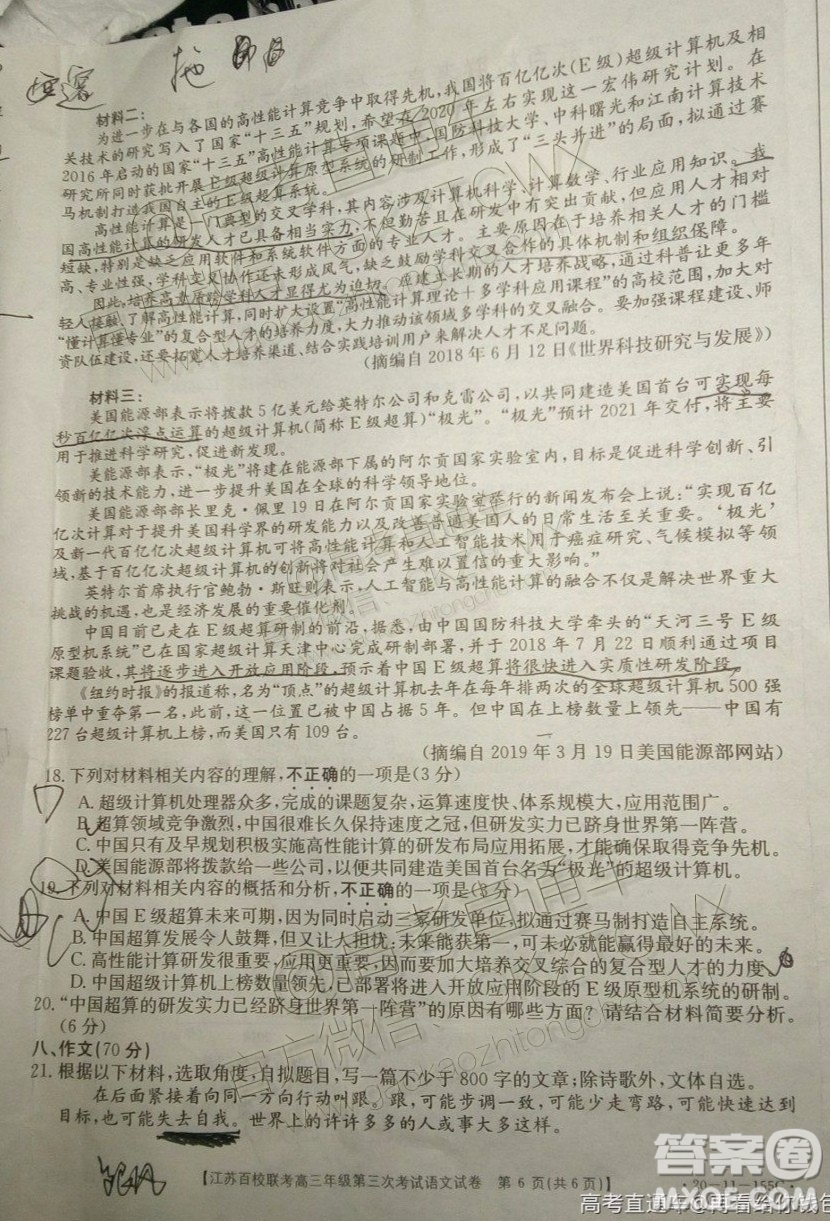 材料二：
为进一步在与各国的高性能计算竞争中取得先机，我国将百亿亿次（E级）超级计算机及相
关技术的研究写入了国家“十三五”规划，希望在2020年左右实现这一宏伟研究计划。在
2016年启动的国家“十三五”高性能计算专项课题中，国防科技大学、中科曙光和江南计算技术
研究所同时获批开展E级超级计算原型系统的研制工作，形成了“三头并进”的局面，拟通过赛
马机制打造我国自主的E级超算系统。
高性能计算是一门典型的交叉学科，其内容涉及计算机科学、计算数学、行业应用知识。我
国高性能计算的研发人才已具备相当实力，不但勤苦且在研发中有突出贡献，但应用人才相对
短缺，特别是缺乏应用软件和系统软件方面的专业人才。主要原因在于培养相关人才的门槛
高、专业性强，学科交叉协作还未形成风气，缺乏鼓励学科交叉合作的具体机制和组织保障。
因此，培养高素质跨学科人才显得尤为迫切。应建立长期的人才培养战略，通过科普让更多年
轻人接触、了解高性能计算，同时扩大设置“高性能计算理论＋多学科应用课程”的高校范围，加大对
“懂计算懂专业”的复合型人才的培养力度，大力推动该领域多学科的交叉融合。要加强课程建设、师
资队伍建设，还要拓宽人才培养渠道、结合实践培训用户来解决人才不足问题。
（摘编自2018年6月12日《世界科技研究与发展》）
材料三：
美国能源部表示将拨款5亿美元给英特尔公司和克雷公司，以共同建造美国首台可实现每
秒百亿亿次浮点运算的超级计算机（简称E级超算）“极光”。“极光”预计2021年交付，将主要
用于推进科学研究，促进科学发现。
美能源部表示，“极光”将建在能源部下属的阿尔贡国家实验室内，目标是促进科学创新、引
领新的技术能力，进一步提升美国在全球的科学领导地位。
美国能源部部长里克·佩里19日在阿尔贡国家实验室举行的新闻发布会上说：“实现百亿
亿次计算对于提升美国科学界的研发能力以及改善普通美国人的日常生活至关重要。‘极光’
及新一代百亿亿次超级计算机可将高性能计算和人工智能技术用于癌症研究、气候模拟等领
域，基于百亿亿次超级计算机的创新将对社会产生难以置信的重大影响。”
英特尔首席执行官鲍勃·斯旺则表示，人工智能与高性能计算的融合不仅是解决世界重大
挑战的机遇，也是经济发展的重要催化剂。
中国目前已走在E级超算研制的前沿，据悉，由中国国防科技大学牵头的“天河三号E级
原型机系统”已在国家超级计算天津中心完成研制部署，并于2018年7月22日顺利通过项目
课题验收，其将逐步进入开放应用阶段，预示着中国E级超算将很快进入实质性研发阶段。
《纽约时报》的报道称，名为“顶点”的超级计算机去年在每年排两次的全球超级计算机500强
榜单中重夺第一名，此前，这一位置已被中国占据5年。但中国在上榜数量上领先——中国有
227台超级计算机上榜，而美国只有109台。
（摘编自2019年3月19日美国能源部网站）
18. 下列对材料相关内容的理解，不正确的一项是（3分）
A. 超级计算机处理器众多，完成的课题复杂，运算速度快、体系规模大，应用范围广。
B. 超算领域竞争激烈，中国很难长久保持速度之冠，但研发实力已跻身世界第一阵营。
C. 中国只有及早规划积极实施高性能计算的研发布局应用拓展，才能确保取得竞争先机。
D. 美国能源部将拨款给一些公司，以便共同建造美国首台名为“极光”的超级计算机。
19. 下列对材料相关内容的概括和分析，不正确的一项是（3分）
A. 中国E级超算未来可期，因为同时启动三家研发单位，拟通过赛马制打造自主系统。
B. 中国超算发展令人鼓舞，但又让人担忧：未来能获第一，可未必就能赢得最好的未来。
C. 高性能计算研发很重要，应用更重要，因而要加大培养交叉综合的复合型人才的力度。
D. 中国超级计算机上榜数量领先，已部署将进入开放应用阶段的E级原型机系统的研制。
20. “中国超算的研发实力已经跻身世界第一阵营”的原因有哪些方面？请结合材料简要分析。
（6分）
八、作文（70分）
21. 根据以下材料，选取角度，自拟题目，写一篇不少于800字的文章；除诗歌外，文体自选。
在后面紧接着向同一方向行动叫跟。跟，可能步调一致，可能少走弯路，可能快速达到
目标，也可能失去自我。世界上的许许多多的人或事大多这样。
【江苏百校联考高三年级第三次考试语文试卷 第6页（共6页）】
·20-11-155C·
答案圈